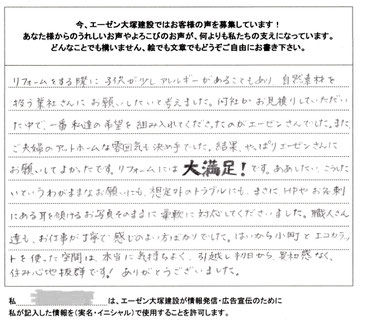 今、エーゼン大塚建設ではお客様の声を募集しています！
あなた様からのうれしいお声やよろこびのお声が、何よりも私たちの支えになっています。
どんなことでも構いません、絵でも文章でもどうぞご自由にお書き下さい。
リフォームをする際に子供が少しアレルギーがあることもあり 自然素材を
扱う業社さんにお願いしたいと考えました。何社かお見積りしていただい
た中で、一番私達の希望を組み入れてくださったのがエーゼンさんでした。また
ご夫婦のアットホームな雰囲気も決め手でした。結果、やっぱりエーゼンさんに
お願いしてよかったです。リフォームには 大満足！です。ああしたい、こうした
いというわがままなお願いにも、想定外のトラブルにも、まさにHPやお名刺
にある耳を傾けるお写真そのままに柔軟に対応してくださいました。職人さん
達も、お仕事が丁寧で感じのよい方ばかりでした。はいから小町とエコカラッ
トを使った空間は、本当に気持ちよく、引越し初日から違和感なく、
住み心地抜群です！ ありがとうございました。
私 は、エーゼン大塚建設が情報発信・広告宣伝のために
私が記入した情報を（実名・イニシャル）で使用することを許可します。